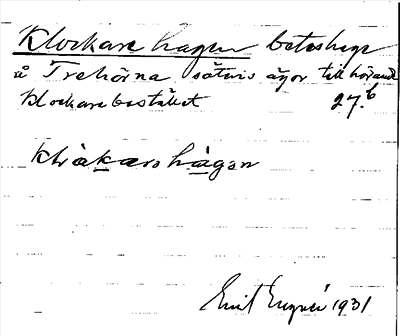 Klockare hagen beteshage
å Trehörna säteris ägor tillhörande
Klockarebostället 27.b
klȯ̀karɔhàgan
Emil 1931